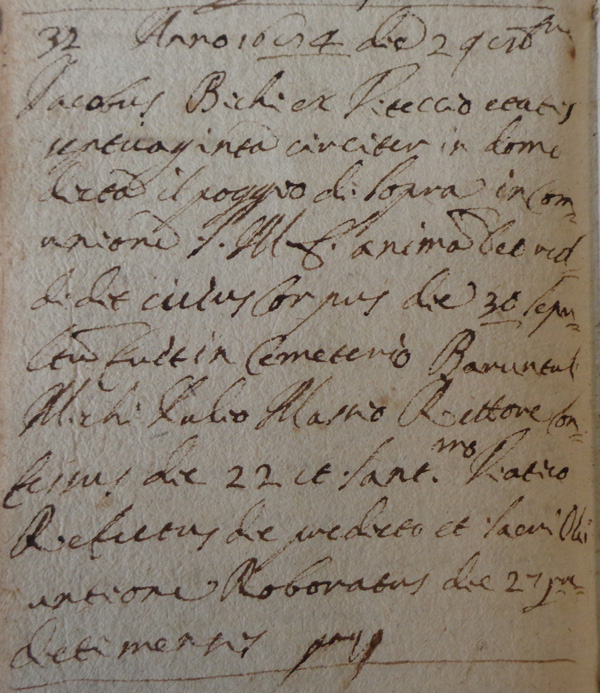 32 Anno 1674 die 29 8bris
Jacobus Bichi ex Piteccio etatis
septuaginta circiter in domo
dicta il poggio di sopra in com-
unione S. M. E. anima Deo red-
didit cuius corpus die 30 sepu-
ltu fuit in Cemeterio Baruntuli
Michi Iulio Masino Rettore con-
fessus die 22 et sant.mo Viatico
Refectus die predicto et sacri Olei
untione Roboratus die 27 pre-
dicti mensis